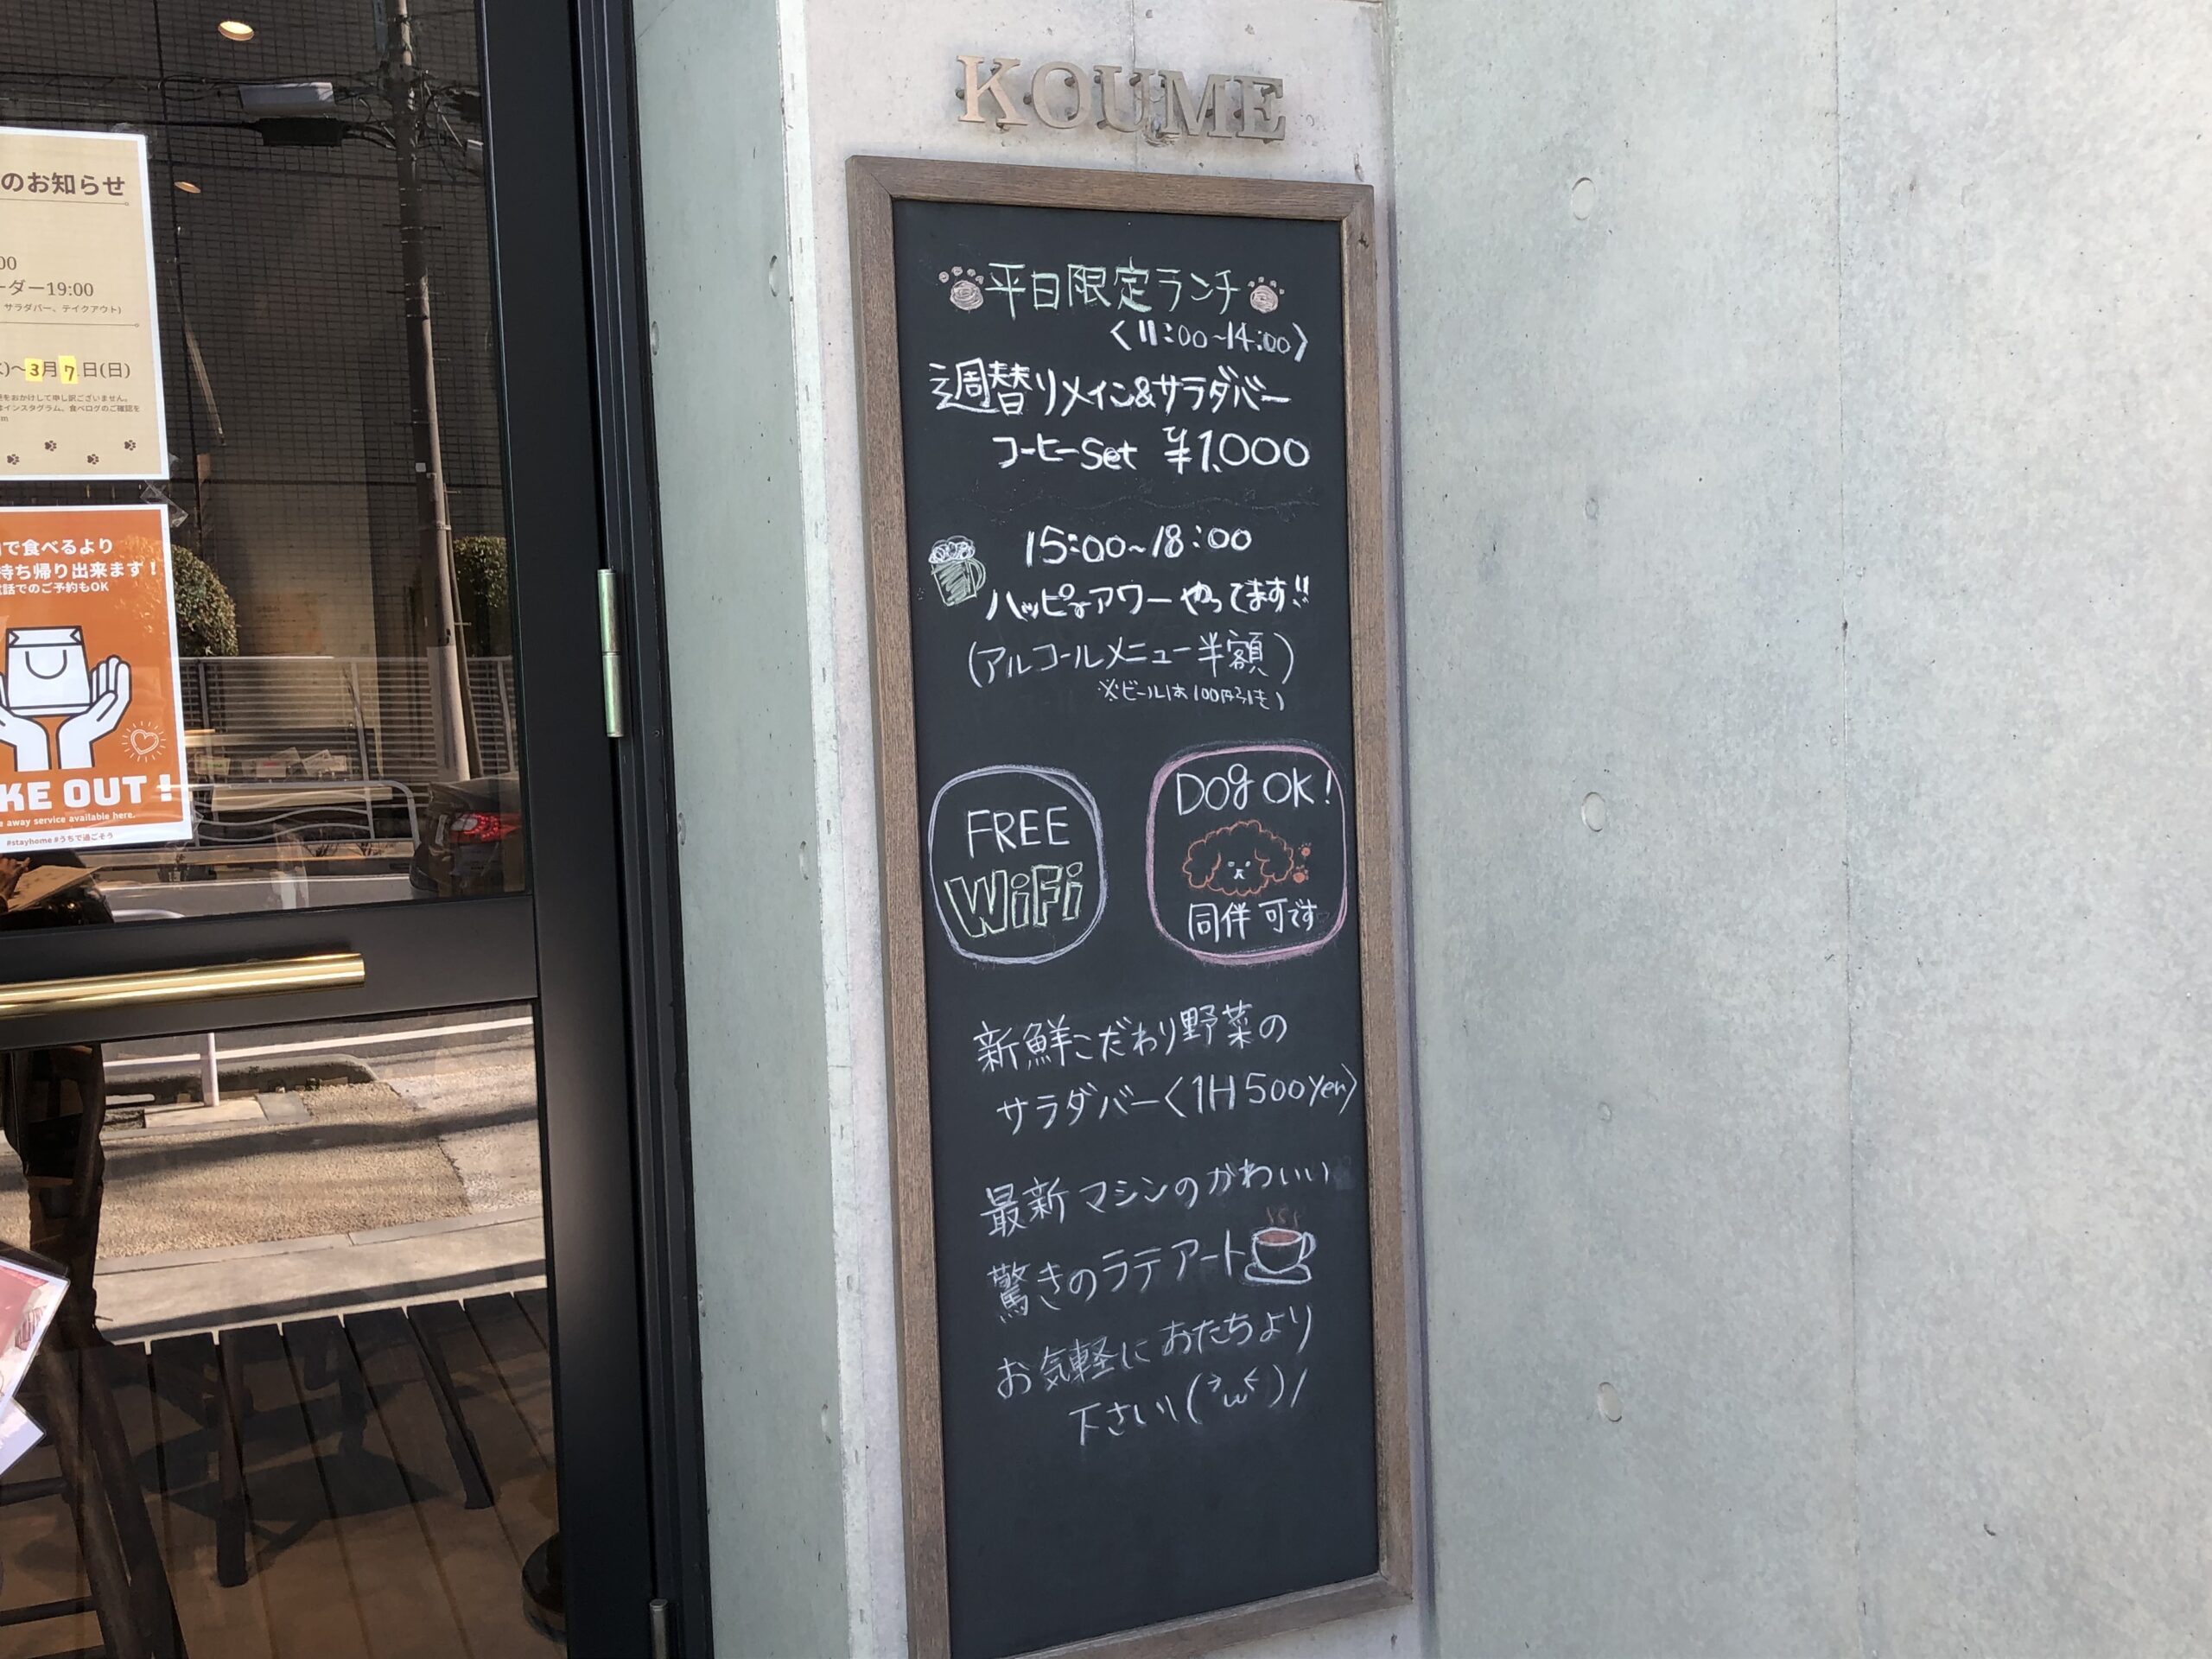 のお知らせ
00
ーダー19:00
サラダバー、テイクアウト)
)～3月7日(日)
をおかけして申し訳ございません。
インスタグラム、食べログのご確認を
で食べるより
持ち帰り出来ます！
話でのご予約もOK
KE OUT !
away service available here.
#stayhome #うちで過ごそう
KOUME
平日限定ランチ
〈11:00~14:00〉
週替りメイン&サラダバー
コーヒーset ¥1,000
15:00~18:00
ハッピーアワーやってます!!
(アルコールメニュー半額)
※ビールは100円引き)
FREE
WiFi
Dog OK!
同伴可です
新鮮こだわり野菜の
サラダバー〈1H 500yen〉
最新マシンのかわいい
驚きのラテアート
お気軽におたちより
下さい\(>ω<)/